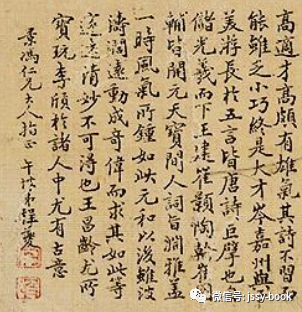 高適才高頗有雄氣其詩不習而
能雖乏小巧終是大才岑嘉州與
美游長於五言皆唐詩巨擘也
儲光羲而下王建崔顥陶翰崔
輔皆開元天寶間人詞旨淵雅蓋
一時風氣所鍾如此元和以後雖波
濤闊遠動成奇偉而求其如此等
邃遠清妙不可得也王昌齡尤所
寶玩李頎於諸人中尤有古意
景馮仁兄大人指正
微信号: jssy-book